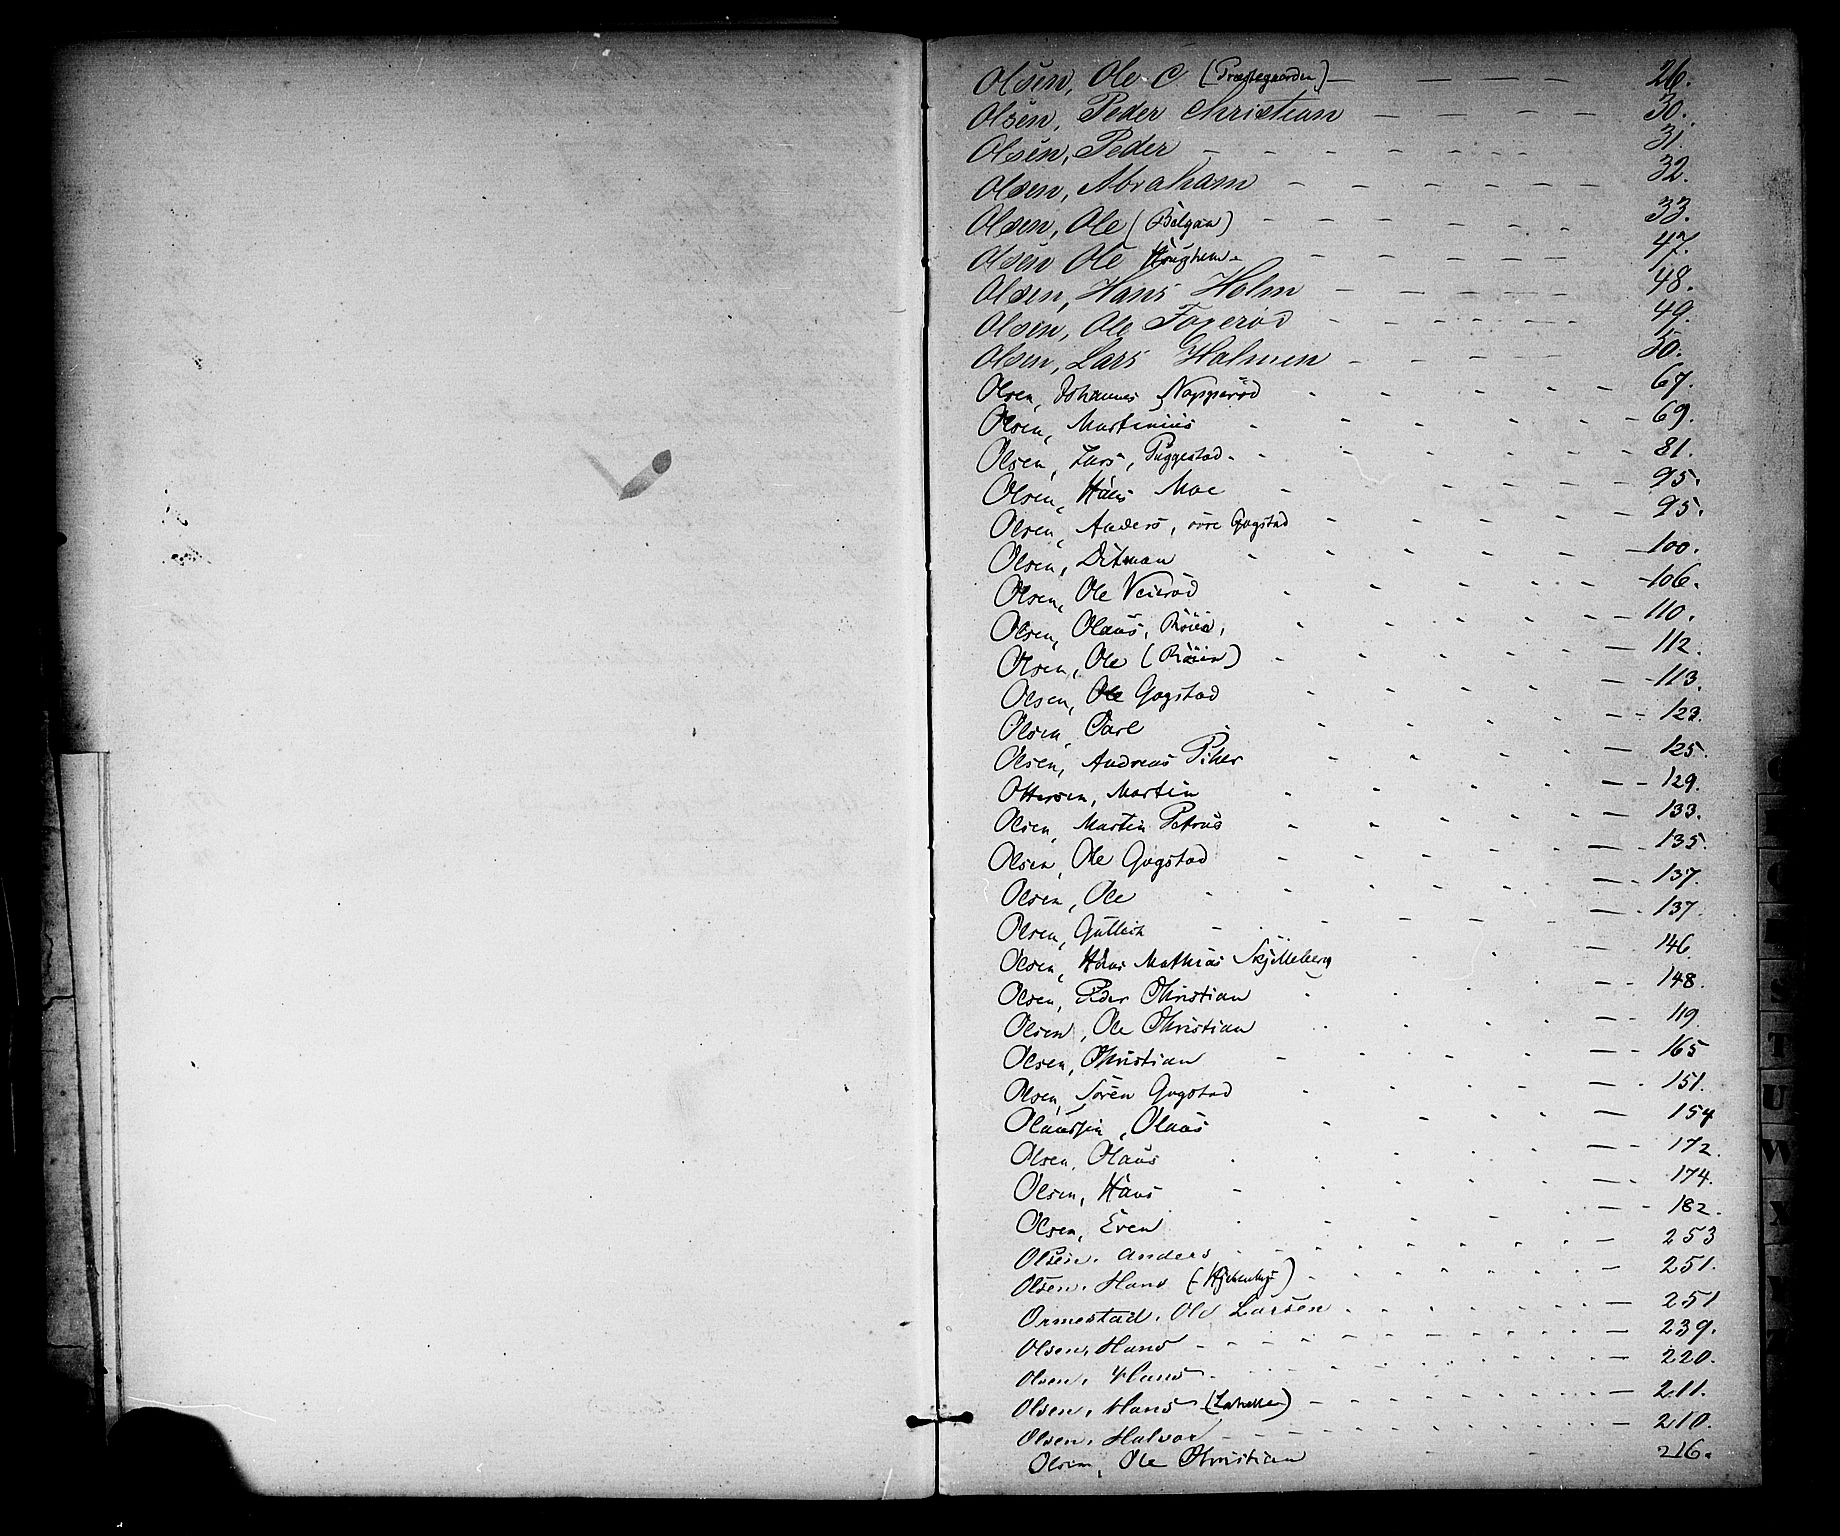 Olsen, Ole C. (Præstegaarden) — — — — 26.
Olsen, Peder Christian — — — — 30.
Olsen, Peder — — — — — — 31.
Olsen, Abraham — — — — — — 32.
Olsen, Ole (Bölgan) — — — — — 33.
Olsen Ole Haughem — — — — — 47.
Olsen, Hans Holm — — — — — 48.
Olsen, Ole Foxeröd — — — — — 49.
Olsen, Lars Holmen — — — — 50.
Olsen, Johannes Napperöd - - - - - 67.
Olsen, Martinius - - - - - 69.
Olsen, Lars, Puggestad - - - - - 81.
Olsen, Hans Moe - - - - - 95.
Olsen, Anders, övre Gogstad - - - - 95.
Olsen, Ditman - - - - - 100.
Olsen, Ole Veieröd - - - - - 106.
Olsen, Olaus, Röien, - - - - 110.
Olsen, Ole (Röien) - - - - - 112.
Olsen, Ole Gogstad - - - - - 113.
Olsen, Carl - - - - - 123.
Olsen, Andreas Piher - - - - 125.
Ottersen, Martin - - - - - 129.
Olsen, Martin Petrus - - - - - 133.
Olsen, Ole Gogstad - - - - - 135.
Olsen, Ole - - - - - - 137.
Olsen, Gullich - - - - - - 137.
Olsen, Hans Mathias Skjelleberg - - - 146.
Olsen, Peder Christian - - - - - 148.
Olsen, Ole Christian - - - - - 119.
Olsen, Christian - - - - - 165
Olsen, Sören Gogstad - - - - - 151.
Olaussen, Olaus - - - - - 154
Olsen, Olaus - - - - - 172.
Olsen, Hans - - - - - 174.
Olsen, Even - - - - - 182.
Olsen, Anders - - - - - 253
Olsen, Hans - - - - - 251.
Ormestad, Ole Larsen - - - - - 251
Olsen, Hans - - - - - 239.
Olsen, Hans - - - - - 220.
Olsen, Hans - - - - - 211.
Olsen, Halvor - - - - - 210.
Olsen, Ole Christian - - - 216.
T
U
W
X